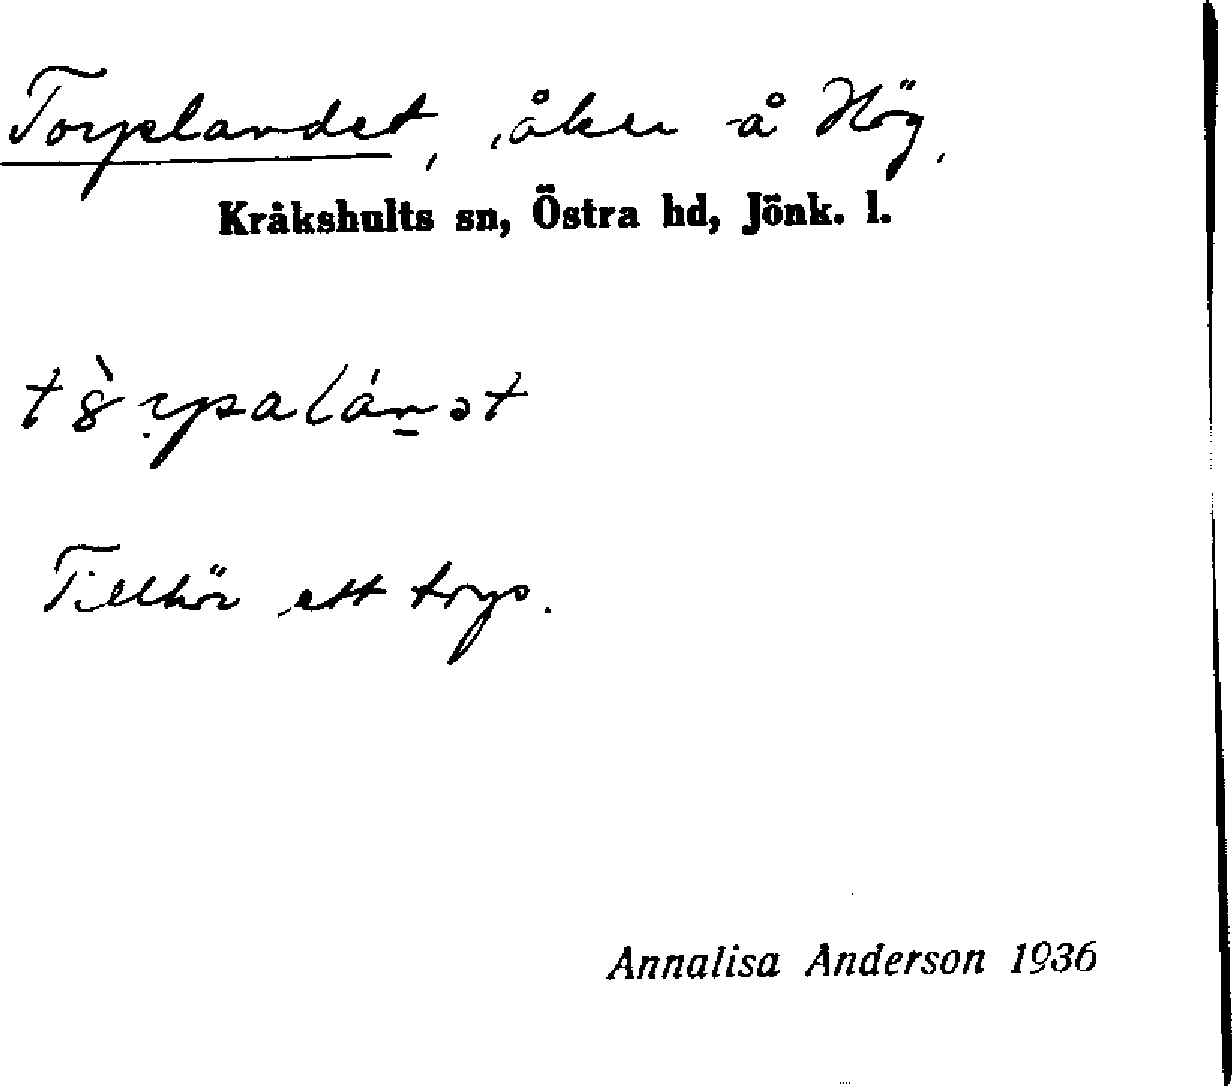 Torplandet, åker å Hög.
Kråkshults sn, Östra hd, Jönk. l.
Tillhör ett torp.
Annalisa Anderson 1936